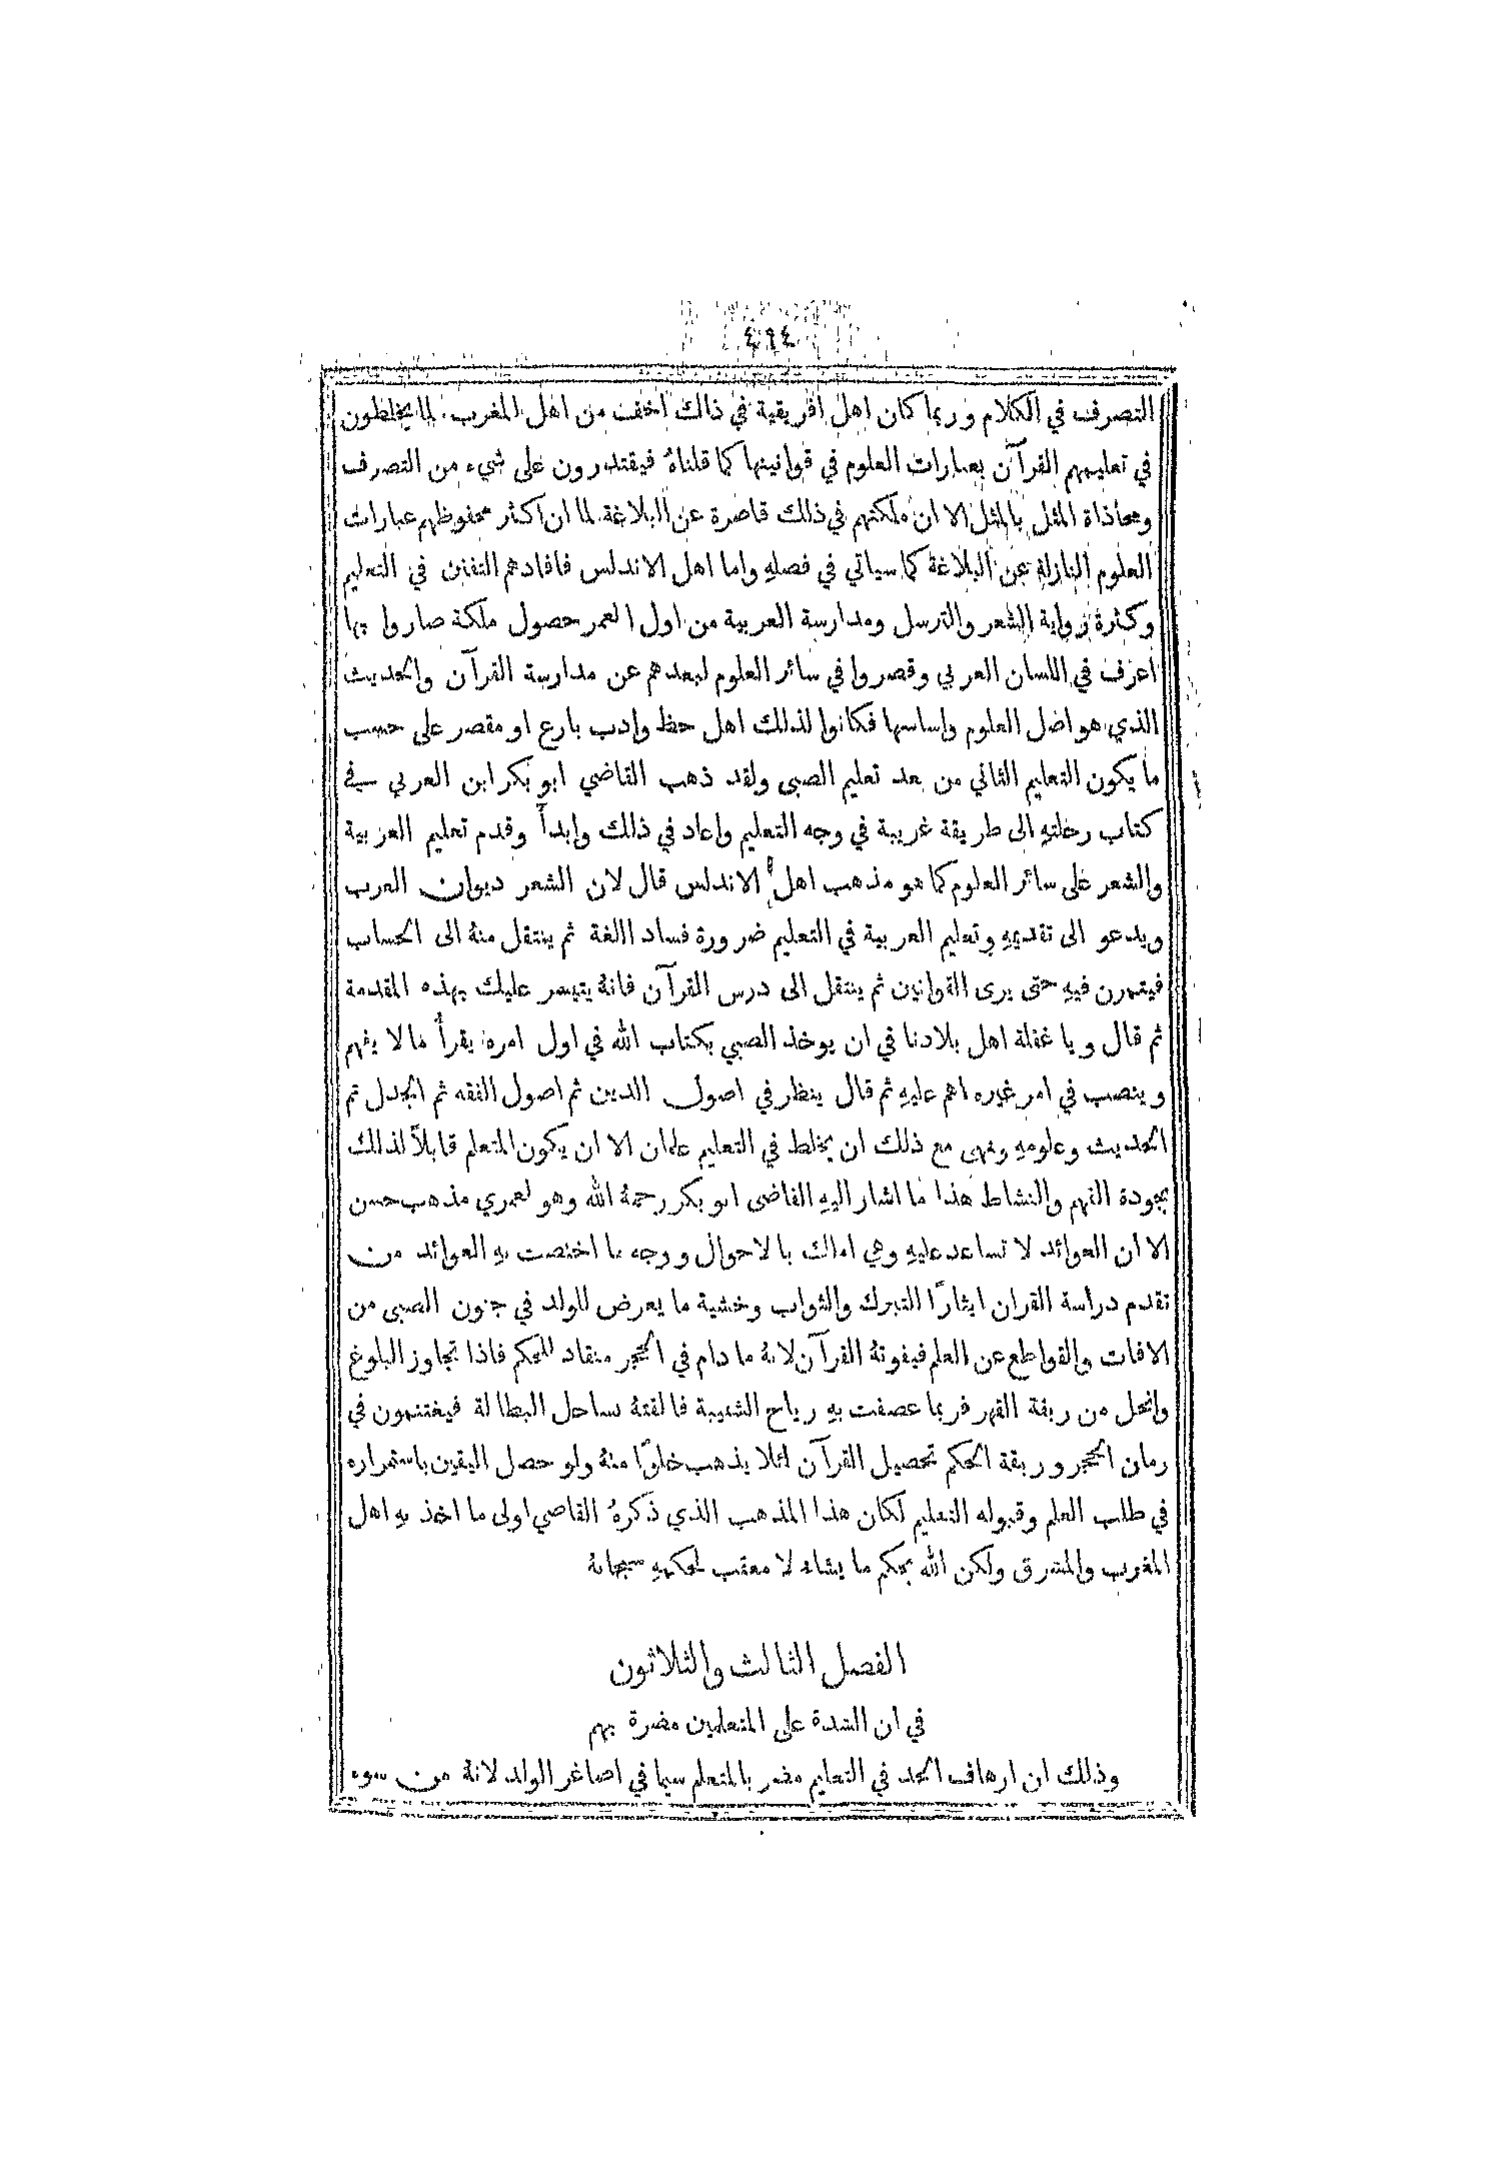 ٤٩٤
التصرف في الكلام وربما كان اهل افريقية في ذالك اخف من اهل المغرب لما يخلطون
في تعليمهم القرآن بعبارات العلوم في قوانينها كما قلناهُ فيقتدرون على شيء من التصرف
ومحاذاة المثل بالمثل الا ان ملكتهم في ذلك قاصرة عن البلاغة لما ان اكثر محفوظهم عبارات
العلوم النازلة عن البلاغة كما سياتي في فصلهِ واما اهل الاندلس فافادهم التفنن في التعليم
وكثرة رواية الشعر والترسل ومدارسة العربية من اول العمر حصول ملكة صاروا بها
اعرف في اللسان العربي وقصروا في سائر العلوم لبعدهم عن مدارسة القرآن والحديث
الذي هو اصل العلوم واساسها فكانوا لذلك اهل حظ وادب بارع او مقصر على حسب
ما يكون التعليم الثاني من بعد تعليم الصبى ولقد ذهب القاضي ابو بكر ابن العربي في
كتاب رحلتهِ الى طريقة غريبة في وجه التعليم واعاد في ذلك وابدأَ وقدم تعليم العربية
والشعر على سائر العلوم كما هو مذهب اهل الاندلس قال لان الشعر ديوان العرب
ويدعو الى تقديمهِ وتعليم العربية في التعليم ضرورة فساد اللغة ثم ينتقل منهُ الى الحساب
فيتمرن فيهِ حتى يرى القوانين ثم ينتقل الى درس القرآن فانهُ يتيسر عليك بهذه المقدمة
ثم قال ويا غفلة اهل بلادنا في ان يوخذ الصبي بكتاب الله في اول امره يقرأُ ما لا يفهم
وينصب في امر غيره اهم عليهِ ثم قال ينظر في اصول الدين ثم اصول الفقه ثم الجدل ثم
الحديث وعلومهِ ونهى مع ذلك ان يخلط في التعليم علمان الا ان يكون المتعلم قابلاً لذلك
بجودة الفهم والنشاط هذا ما اشار اليهِ القاضى ابو بكر رحمهُ الله وهو لعمري مذهب حسن
الا ان العوائد لا تساعد عليهِ وهي املك بالاحوال ووجه ما اختصت بهِ العوائد من
تقدم دراسة القران ايثارًا للتبرك والثواب وخشية ما يعرض للولد في جنون الصبى من
الافات والقواطع عن العلم فيفوتهُ القرآن لانهُ ما دام في الحجر منقاد للحكم فاذا تجاوز البلوغ
وانحل من ربقة القهر فربما عصفت بهِ رياح الشبيبة فالقتهُ بساحل البطالة فيغتنمون في
زمان الحجر وربقة الحكم تحصيل القرآن لئلا يذهب خلوًا منهُ ولو حصل اليقين باستمراره
في طلب العلم وقبوله التعليم لكان هذا المذهب الذي ذكرهُ القاضي اولى ما اخذ به اهل
المغرب والمشرق ولكن الله يحكم ما يشاء لا معقب لحكمهِ سبحانهُ
الفصل الثالث والثلاثون
في ان الشدة على المتعلمين مضرة بهم
وذلك ان ارهاف الحد في التعليم مضر بالمتعلم سيما في اصاغر الولد لانهُ من سوء